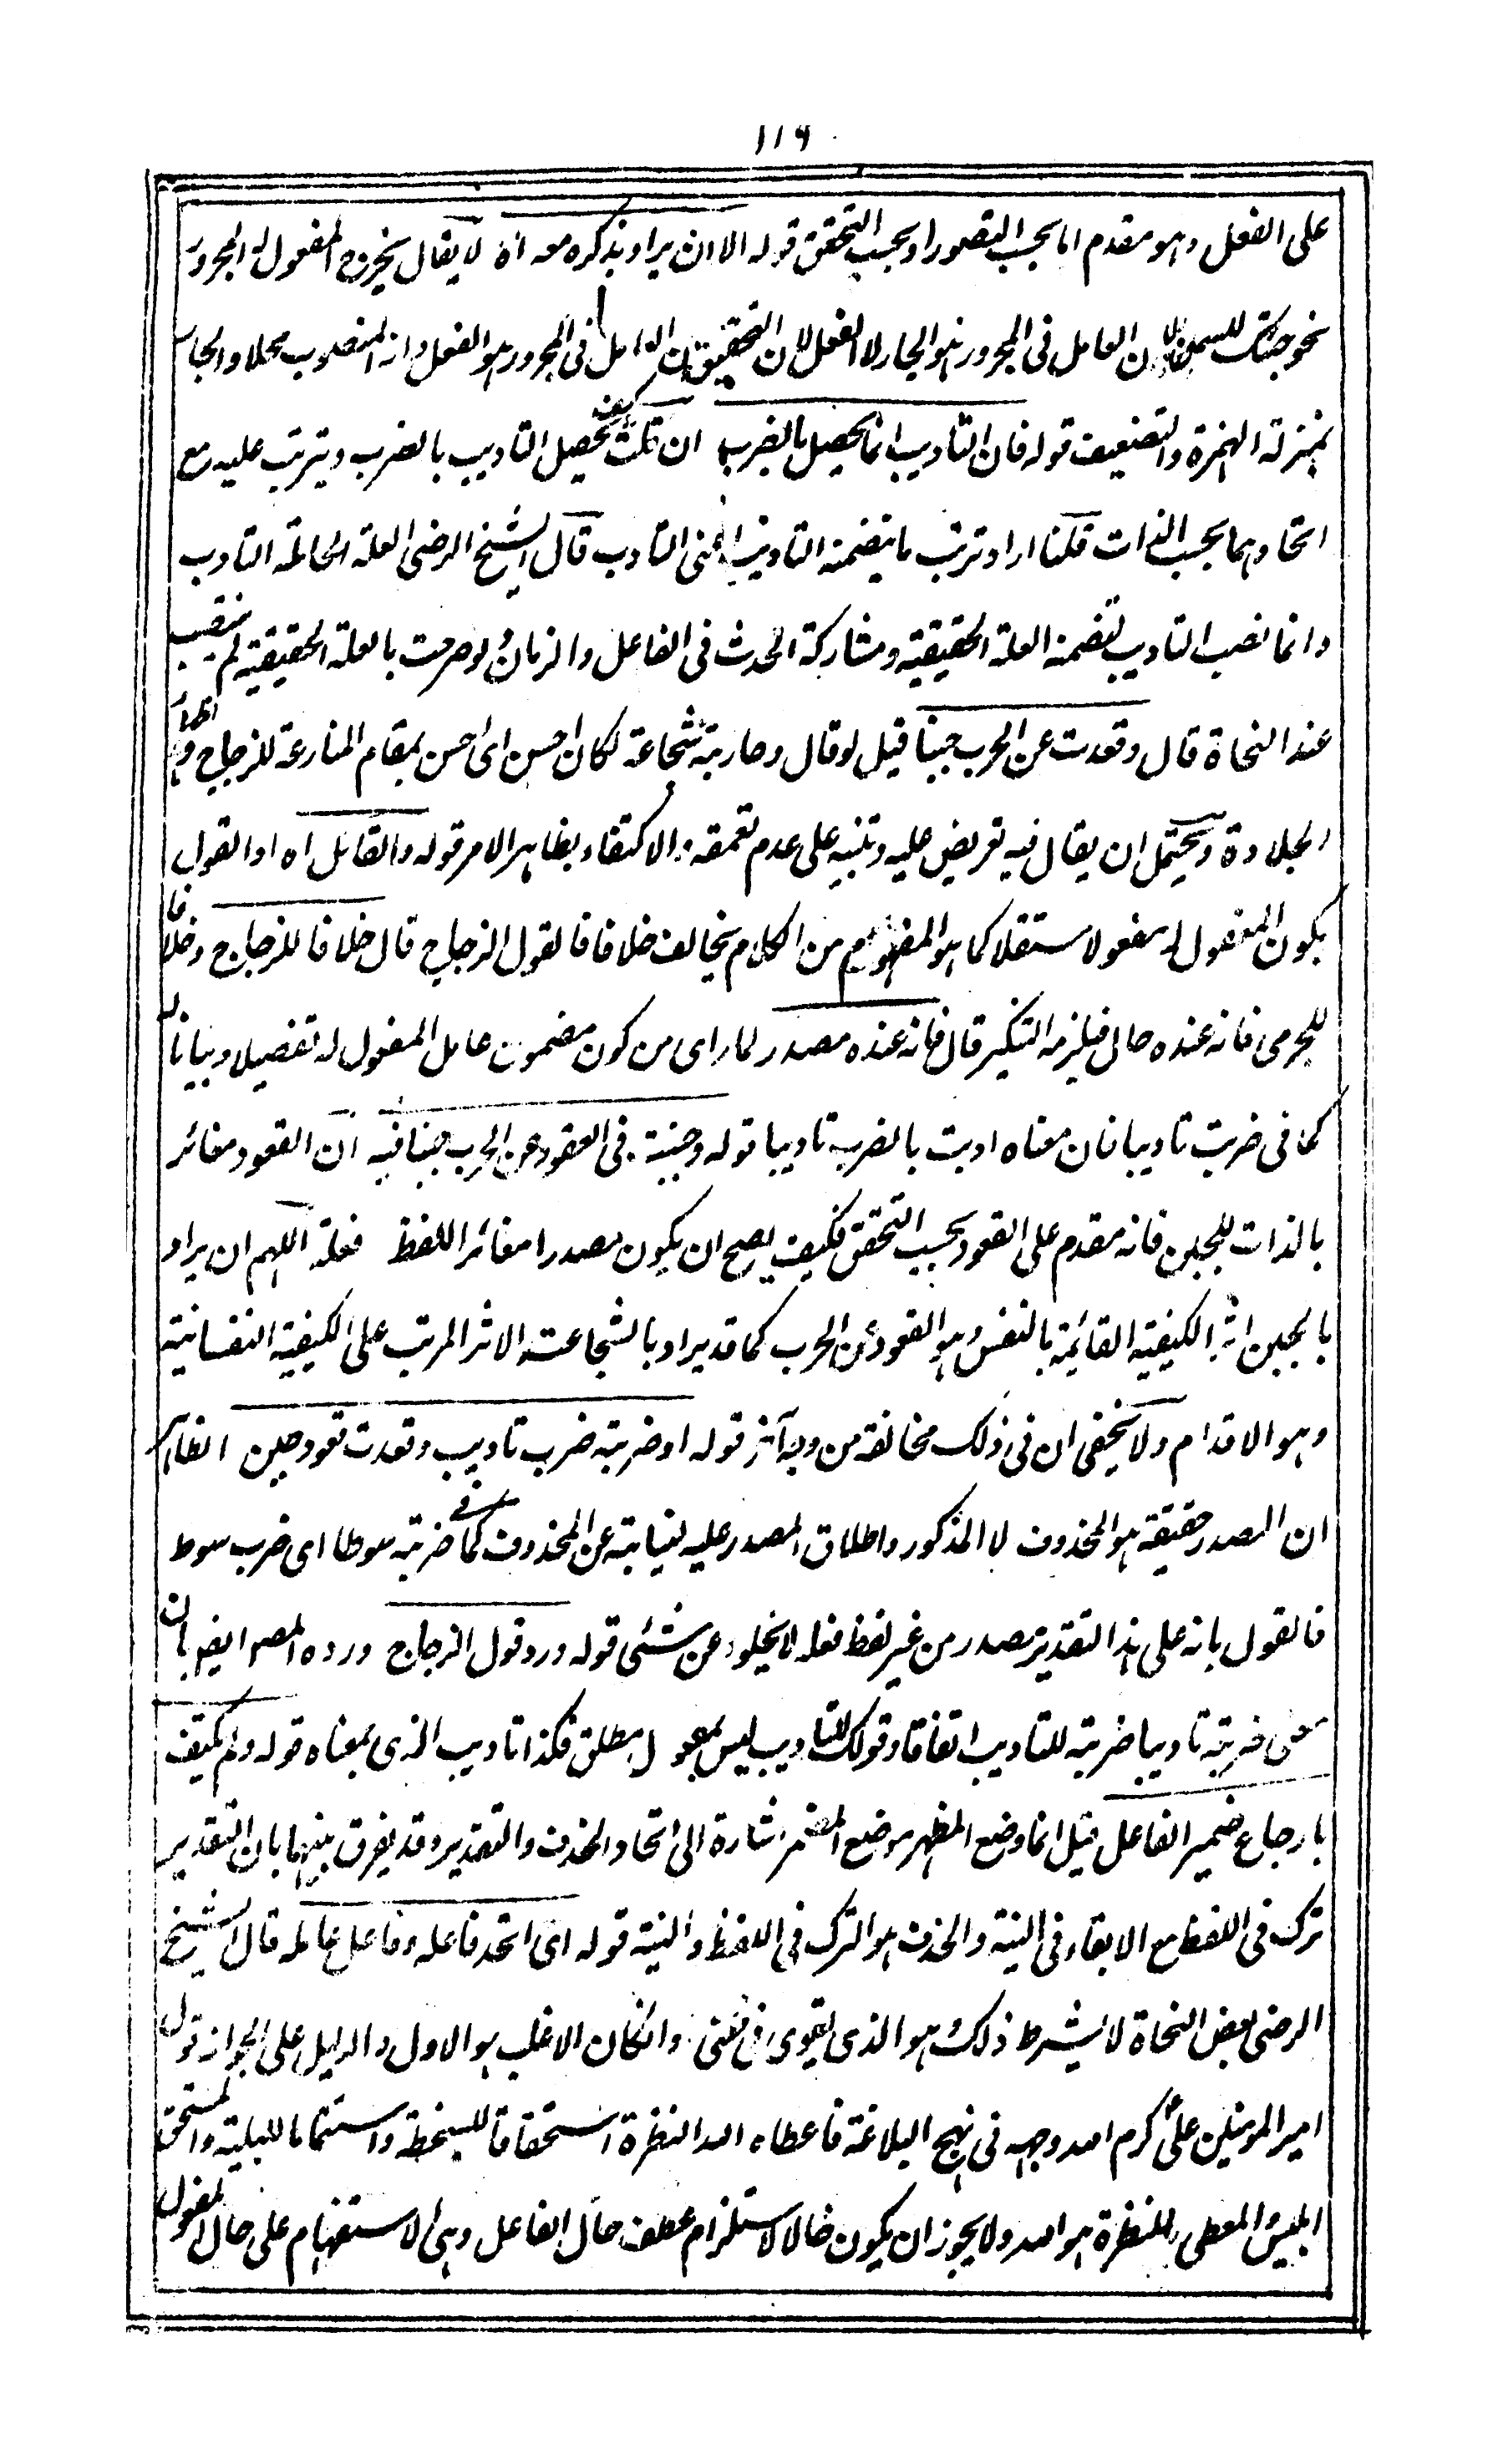 ١١٦
على الفعل وهو مقدم اما بحسب التصور او بحسب التحقق قوله الا ان يراد بذكره معه اه لا يقال يخرج المفعول له المجرور
نحو جئتك للسمن لان العامل فى المجرور هو الجار لا الفعل لان التحقيق ان العامل فى المجرور هو الفعل وانه المنصوب محلا والجار
بمنزلة الهمزة والتضعيف قوله فان التاديب انما يحصل بالضرب ان قلت كيف يحصل التاديب بالضرب ويترتب عليه مع
اتحادهما بحسب الذات قلنا اراد ترتب ما يتضمنه التاديب اعنى التادب قال الشيخ الرضى العلة الحاملة التادب
وانما نصب التاديب لتضمنه العلة الحقيقية ومشاركة الحدث فى الفاعل والزمان ولو صرحت بالعلة الحقيقية لم ينتصب
عند النحاة قال وقعدت عن الحرب جبنا قيل لو قال وحاربته شجاعة لكان احسن اى احسن بمقام المنازعة للزجاج واظهار
الجلادة ويحتمل ان يقال فيه تعريض عليه وتنبيه على عدم تعمقه والاكتفاء بظاهر الامر قوله والقائل اه او القول
بكون المفعول له مفعولا مستقلا كما هو المفهوم من الكلام يخالف خلافا لقول الزجاج قال خلافا للزجاج وخلافا
للجرمى فانه عنده حال فيلزمه التنكير قال فانه عنده مصدر لما راى من كون مضمون عامل المفعول له تفصيلا وبيانا له
كما فى ضربت تاديبا فان معناه ادبت بالضرب تاديبا قوله وجبنت فى القعود عن الحرب جبنا فيه ان القعود مغائر
بالذات للجبن فانه مقدم على القعود بحسب التحقق فكيف يصح ان يكون مصدرا مغائر اللفظ فعله اللهم ان يراد
بالجبن اثر الكيفية القائمة بالنفس وهو القعود عن الحرب كما قد يراد بالشجاعة الاثر المرتب على الكيفية النفسانية
وهو الاقدام ولا يخفى ان فى ذلك مخالفة من وجه آخر قوله او ضربته ضرب تاديب وقعدت قعود جبن الظاهر
ان المصدر حقيقة هو المحذوف لا المذكور واطلاق المصدر عليه لنيابته عن المحذوف كما فى ضربته سوطا اى ضرب سوط
فالقول بانه على هذا التقدير مصدر من غير لفظ فعله لا يخلو عن شئى قوله ورد قول الزجاج ورده المصـ ايضا بان
معنى ضربته تاديبا ضربته للتاديب اتفاقا وقولك للتاديب ليس بمفعول مطلق فكذا تاديب الذى بمعناه قوله ولم يكتف
بارجاع ضمير الفاعل قيل انما وضع المظهر موضع المضمر اشارة الى اتحاد الحذف والتقدير وقد يفرق بينهما بان التقدير
ترك فى اللفظ مع الابقاء فى النية والحذف هو الترك فى اللفظ والنية قوله اى اتحد فاعله وفاعل عامله قال الشيخ
الرضى بعض النحاة لا يشترط ذلك وهو الذى يقوى فى ظنى وان كان الاغلب هو الاول والدليل على الجواز قول
امير المومنين على كرم الله وجهه فى نهج البلاغة فاعطاه الله النظرة استحقاقا للسخطة واستتماما للبلية والمستحق
ابليس والمعطى للنظرة هو الله ولا يجوز ان يكون حالا لاستلزام عطف حال الفاعل وهى الاستتمام على حال المفعول